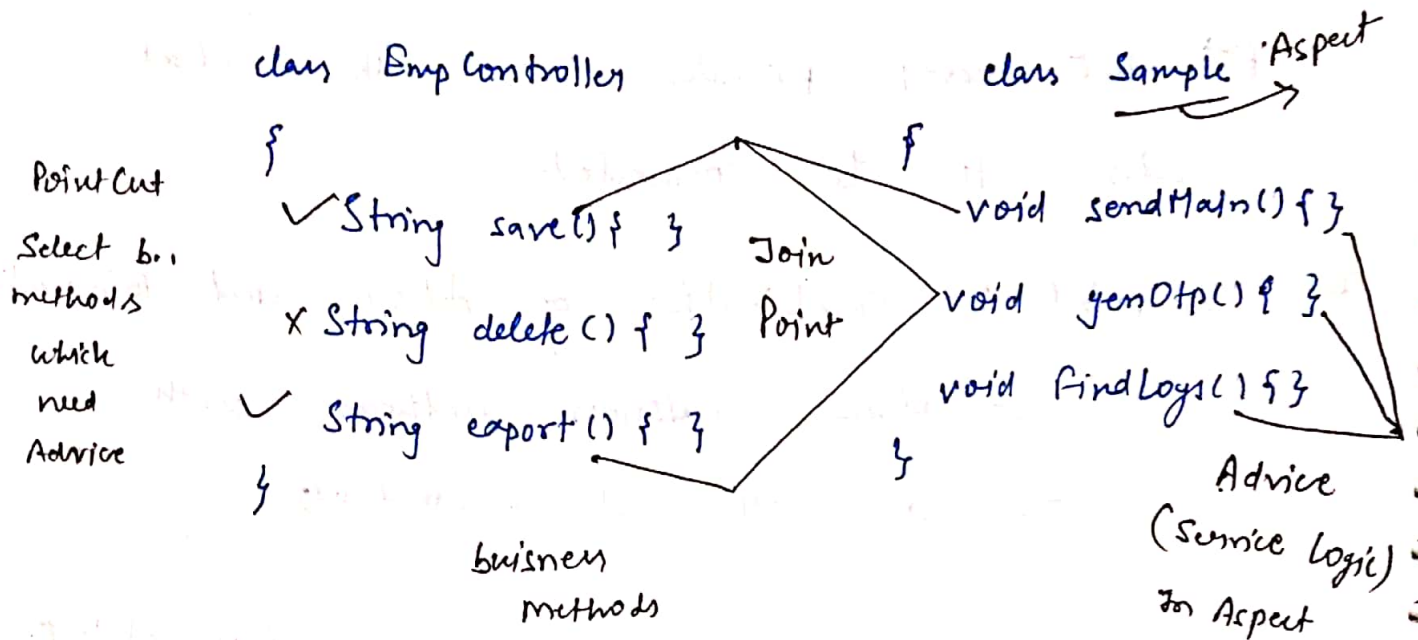 class EmpController
{
✓ String save() { }
x String delete () { }
✓ String export () { }
}
PointCut
Select b..
methods
which
need
Advice
buisness
methods
Join
Point
class Sample
Aspect
{
void sendMain() { }
void genOtp() { }
void findLogs() { }
}
Advice
(Service Logic)
In Aspect